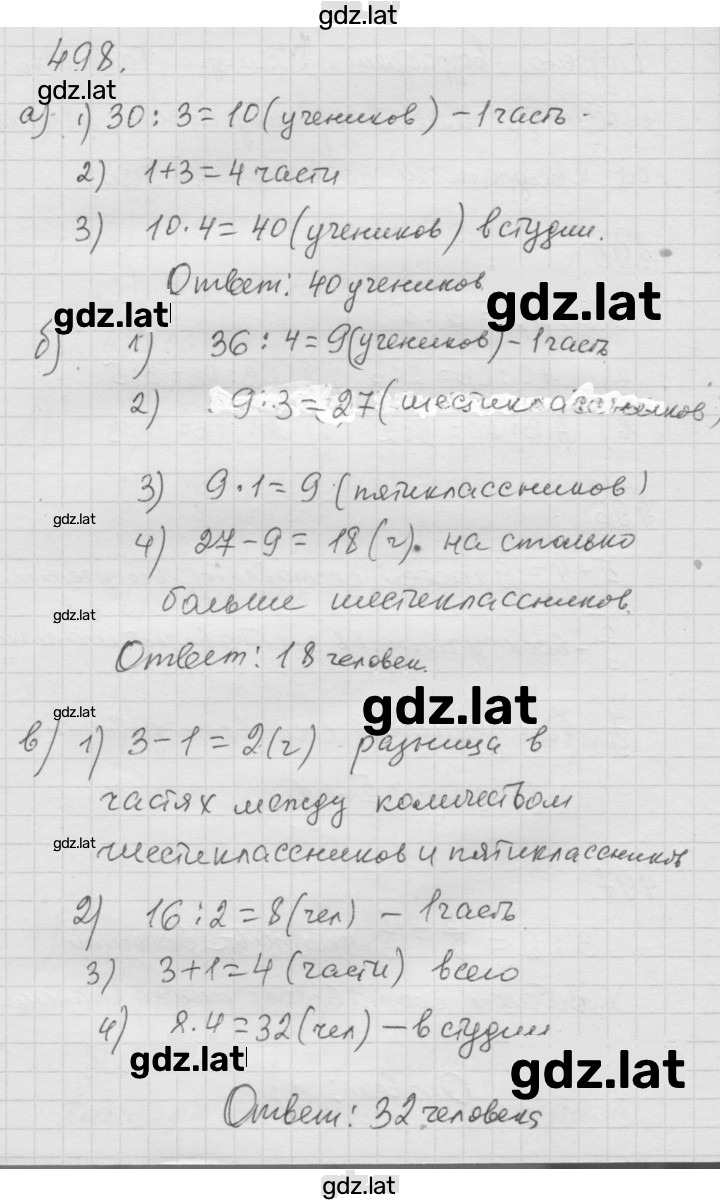 gdz.lat
498.
gdz.lat
а) 1) 30 : 3 = 10 (учеников) – 1 часть.
2) 1+3 = 4 части
3) 10·4 = 40 (учеников) в студии.
Ответ: 40 учеников
gdz.lat
gdz.lat
б) 1) 36 : 4 = 9 (учеников) – 1 часть
2) 9·3 = 27 (шестиклассников)
3) 9·1 = 9 (пятиклассников)
gdz.lat
4) 27 – 9 = 18 (ч). на столько
больше шестиклассников.
gdz.lat
Ответ: 18 человек.
gdz.lat
gdz.lat
в) 1) 3 – 1 = 2 (ч) разница в
частях между количеством
gdz.lat
шестиклассников и пятиклассников
2) 16 : 2 = 8 (чел) – 1 часть
3) 3+1 = 4 (части) всего
4) 8·4 = 32 (чел) – в студии
gdz.lat
gdz.lat
Ответ: 32 человека
gdz.lat